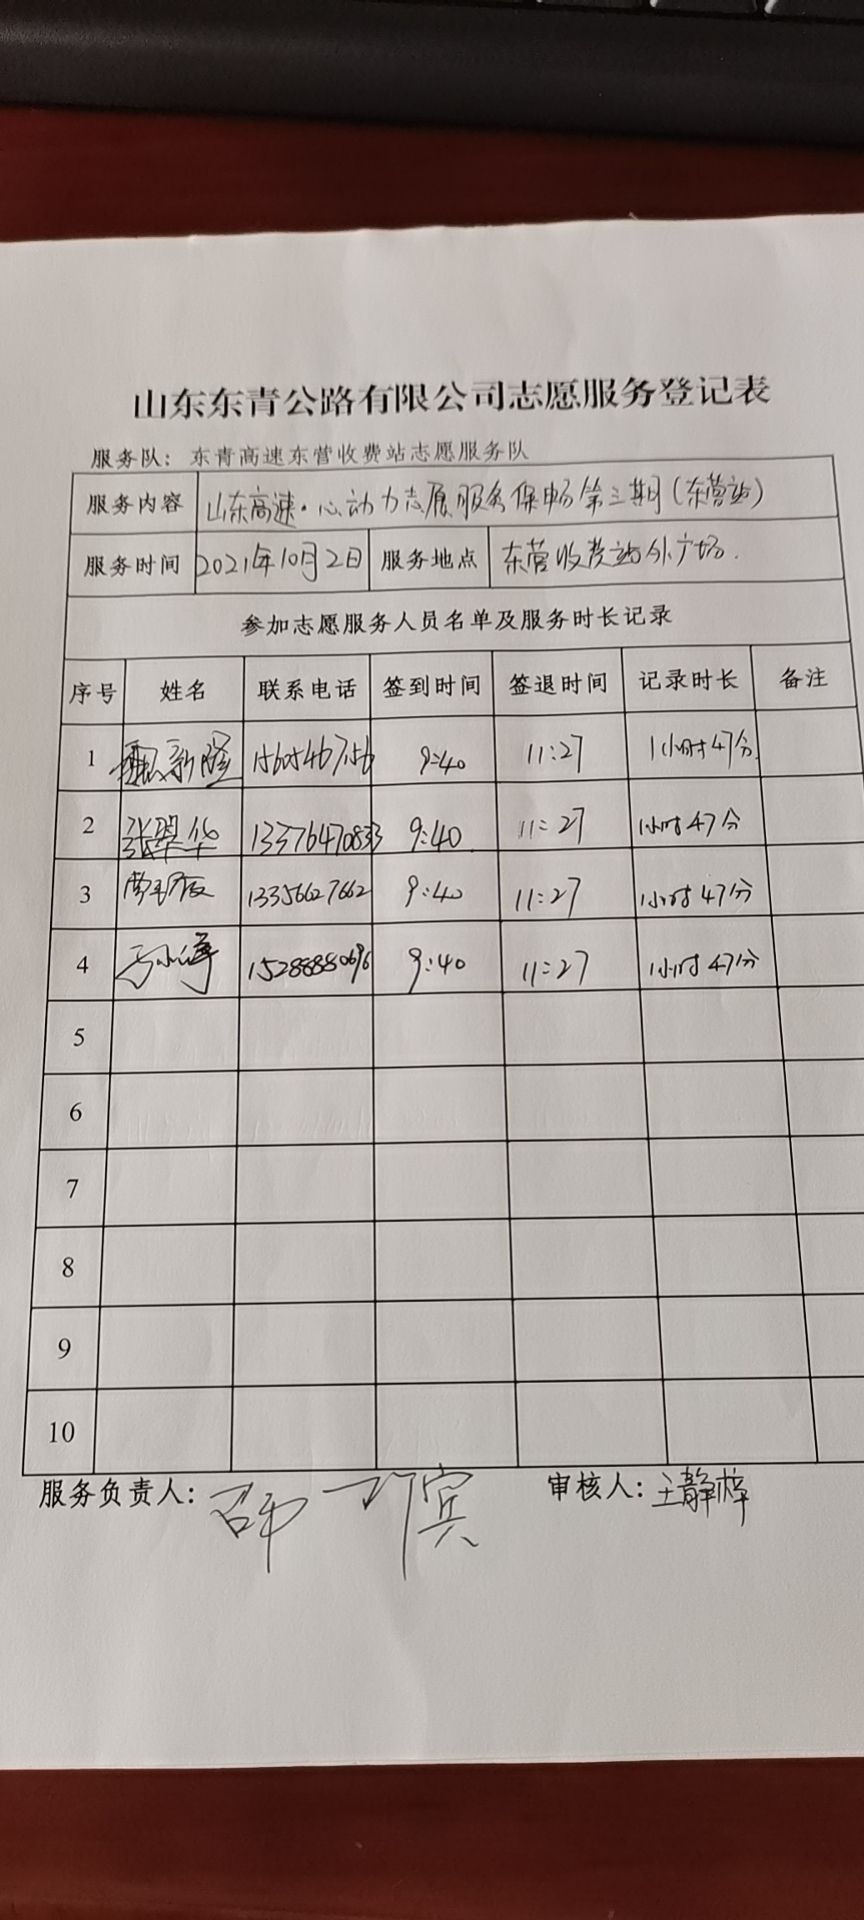 山东东青公路有限公司志愿服务登记表
服务队：东青高速东营收费站志愿服务队
服务内容 山东高速·心动力志愿服务保畅第三期（东营站）
服务时间 2021年10月2日 服务地点 东营收费站外广场.
参加志愿服务人员名单及服务时长记录
序号 姓名 联系电话 签到时间 签退时间 记录时长 备注
1 新隆 15605467156 9:40 11:27 1小时47分
2 张翠华 13376470833 9:40 11:27 1小时47分
3 13356627662 9:40 11:27 1小时47分
4 15288880696 9:40 11:27 1小时47分
5
6
7
8
9
10
服务负责人： 审核人：王静梓